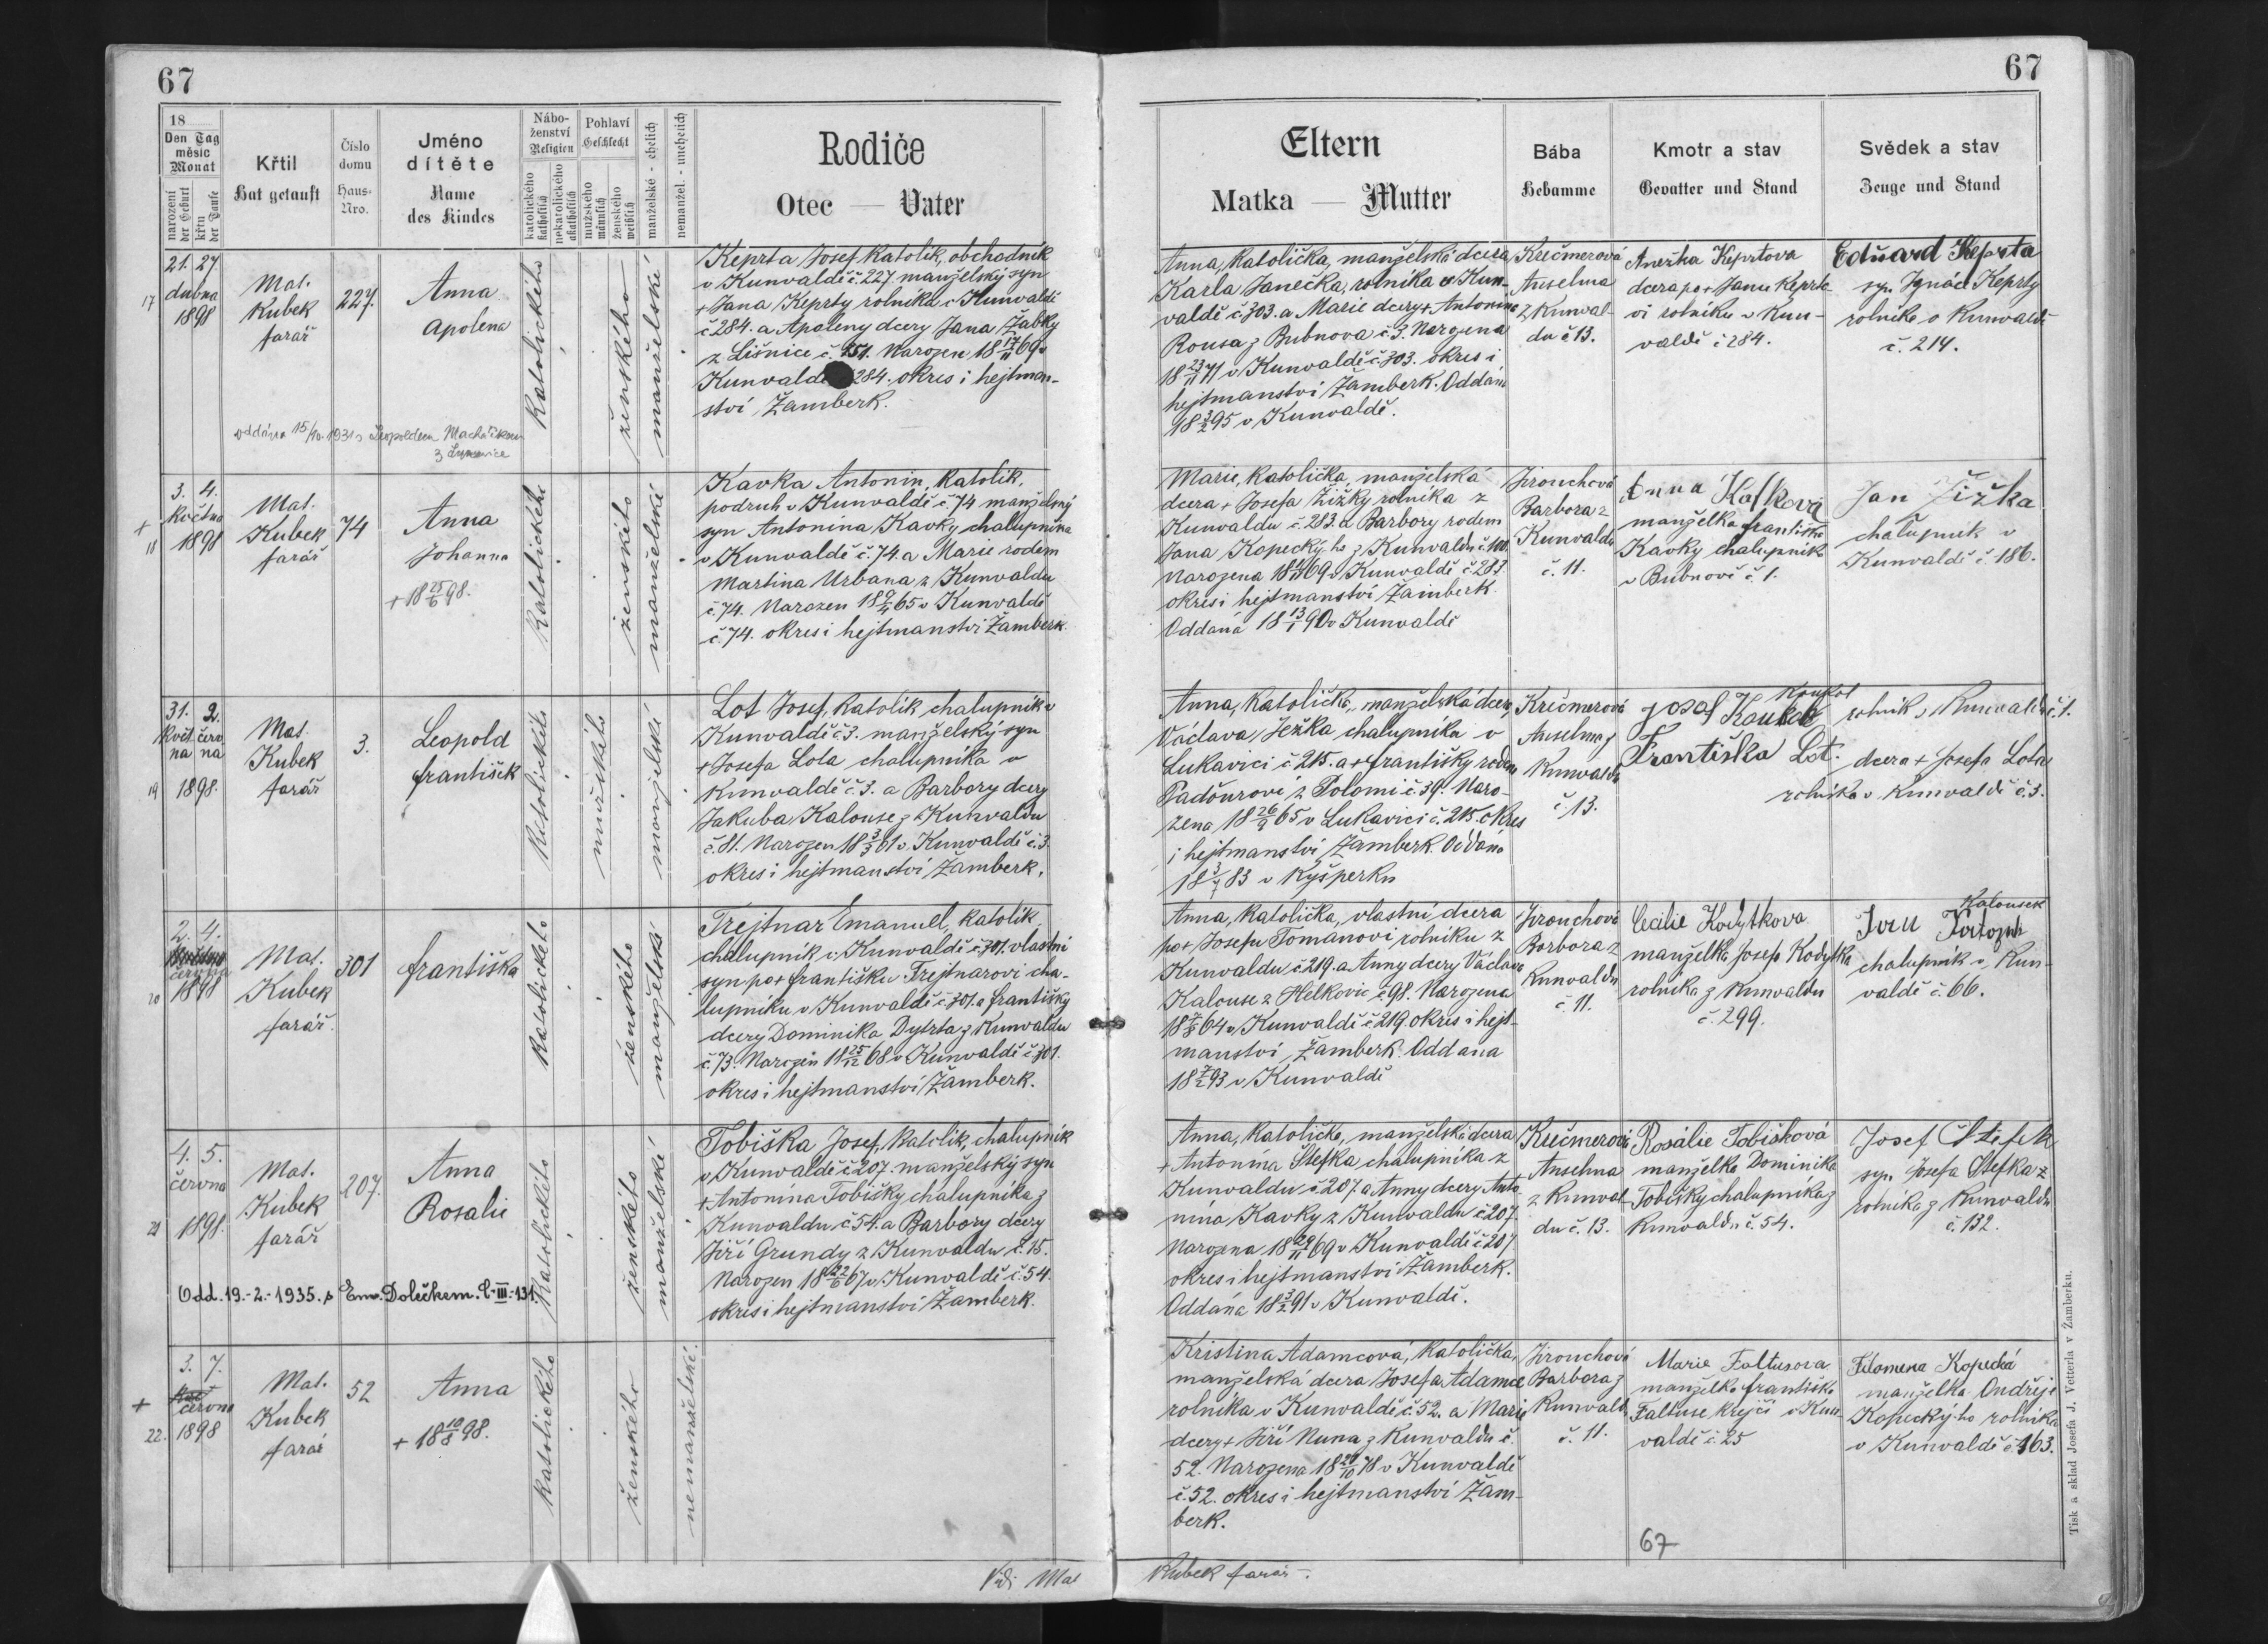 67
67
18
Den Tag
měsíc
Monat
narození
der Geburt
křtu
der Taufe
Křtil
Hat getauft
Číslo
domu
Haus-
Nro.
Jméno
dítěte
Name
des Kindes
Nábo-
ženství
Religion
katolického
katholisch
nekatolického
akatholisch
Pohlaví
Geschlecht
mužského
männlich
ženského
weiblich
manželské - ehelich
nemanžel. - unehelich
Rodiče
Otec — Vater
Eltern
Matka — Mutter
Bába
Hebamme
Kmotr a stav
Gevatter und Stand
Svědek a stav
Zeuge und Stand
17
21. 27.
dubna
1898
Mat.
Kubek
farář
227.
Anna
Apolena
Katolického
ženského
manželské
Keprta Josef, katolík, obchodník
v Kunvaldě č. 227. manželský syn
+ Jana Keprty rolníka v Kunvaldě
č 284. a Apoleny dcery Jana Žabky
z Lišnice č. 151. Narozen 18 17/11 69 v
284. okres i hejtman-
ství Žamberk.
Anna, katolička, manželská dcera
Karla Janečka, rolníka v Kun-
valdě č 303. a Marie dcery + Antonína
Rousa z Bubnova č. 3. Narozena
18 23/11 71 v Kunvaldě č 303. okres i
hejtmanství Žamberk. Oddána
18 3/2 95 v Kunvaldě.
Krečmerová
Anselma
z Kunval-
du č 13.
Anežka Keprtova
dcera po + Janu Keprto-
vi rolníku v Kun-
valdě č 284.
Eduard Keprta
syn Ignáce Keprty
rolníka v Kunvaldě
č. 214.
oddána 15/10. 1931 s Leopoldem
+
18
3. 4.
Května
1898
Mat.
Kubek
farář
74
Anna
Johanna
+ 18 25/6 98.
Katolického
ženského
manželské
Kavka Antonín, katolík,
podruh v Kunvaldě č 74 manželský
syn Antonína Kavky chalupníka
v Kunvaldě č. 74. a Marie rodem
Martina Urbana z Kunvaldu
č. 74. Narozen 18 9/4 65 v Kunvaldě
č. 74. okres i hejtmanství Žamberk.
Marie, katolička, manželská
dcera + Josefa Žižky rolníka z
Kunvaldu č. 283. a Barbory rodem
Jana Kopecký-ho z Kunvaldu
Narozena 69 v Kunvaldě č 283.
okres i hejtmanství Žamberk.
Oddána 18 13/1 90 v Kunvaldě
Jirouchová
Barbora z
Kunvaldu
č. 11.
Anna Kafková
manželka Františka
Kavky chalupníka
v Bubnově č. 1.
Jan Žižka
chalupník v
Kunvaldě č. 186.
19
31. 2.
Květ- červ
na na
1898.
Mat.
Kubek
farář
3.
Leopold
František
Katolického
mužského
manželské
Lot Josef, katolík, chalupník v
Kunvaldě č 3. manželský syn
+ Josefa Lota chalupníka v
Kunvaldě č 3. a Barbory dcery
Jakuba Kalouse z Kunvaldu
č. 81. Narozen 18 3/3 61 v Kunvaldě č. 3.
okres i hejtmanství Žamberk.
Anna, katolička, manželská dcera
Václava Ježka chalupníka v
Lukavici č 215. a + Františky rodem
z Polomi č 39. Naro-
zena 18 26/9 65 v Lukavici č. 215. okres
i hejtmanství Žamberk. Oddána
83 v Kyšperku
Krečmerová
Anselma z
Kunvaldu
č 13.
Koukol
Josef Koukol rolník v Kunvaldě č. 1.
Františka Lot. dcera + Josefa Lota
rolníka v Kunvaldě č. 3.
20
2. 4.
června
1898
Mat.
Kubek
farář.
301
Františka
Katolického
ženského
manželské
Trejtnar Emanuel, katolík,
chalupník v Kunvaldě č 301. vlastní
syn po + Františku Trejtnarovi cha-
lupníku v Kunvaldě č 301. a Františky
dcery Dominika Dytrta z Kunvaldu
č. 73. Narozen 18 25/12 68 v Kunvaldě č 301.
okres i hejtmanství Žamberk.
Anna, katolička, vlastní dcera
po + Josefu Tomanovi rolníku z
Kunvaldu č 219. a Anny dcery Václava
Kalouse z Helkovic č 98. Narozena
64 v Kunvaldě č 219. okres i hejt-
manství Žamberk. Oddána
18 7/2 93 v Kunvaldě
Jirouchová
Barbora z
Kunvaldu
č. 11.
Cecilie Kodytkova
manželka Josefa Kodytka
rolníka z Kunvaldu
č. 299.
Kalousek
chalupník v Kun-
valdě č. 66.
21
4. 5.
června
1898.
Mat.
Kubek
farář
207.
Anna
Rosalie
Katolického
ženského
manželské
Tobiška Josef, katolík, chalupník
v Kunvaldě č 207. manželský syn
+ Antonína Tobišky chalupníka z
Kunvaldu č 54. a Barbory dcery
Jiří Grundy z Kunvaldu č. 15.
Narozen 18 22/6 67 v Kunvaldě č. 54.
okres i hejtmanství Žamberk.
Anna, katolička, manželská dcera
+ Antonína Štefka chalupníka z
Kunvaldu č. 207. a Anny dcery Anto-
nína Kavky z Kunvaldu č 207.
Narozena 18 29/11 69 v Kunvaldě č 207
okres i hejtmanství Žamberk.
Oddána 18 3/2 91 v Kunvaldě.
Krečmerová
Anselma
z Kunval-
du č. 13.
Rosálie Tobišková
manželka Dominika
Tobišky chalupníka z
Kunvaldu č. 54.
Josef Štefek
syn Josefa Štefka z
rolníka z Kunvaldu
č. 132.
Odd. 19.-2.-1935. s Em. Dolečkem. C-III-131.
+
22.
3. 7.
června
1898
Mat.
Kubek
farář
52
Anna
+ 18 10/8 98.
Katolického
ženského
nemanželské.
Kristina Adamcová, katolička,
manželská dcera Josefa Adamce
rolníka v Kunvaldě č. 52. a Marie
dcery + Jiří Nuna z Kunvaldu č.
52. Narozena 78 v Kunvaldě
č. 52. okres i hejtmanství Žam-
berk.
Jirouchová
Barbora z
Kunvaldu
č. 11.
Marie Faltusova
manželka Františka
Faltuse, krejčí v Kun-
valdě č. 25
Filomena Kopecká
manželka Ondřeje
Kopecký-ho rolníka
v Kunvaldě č 163.
67
Vidi Mat
Kubek farář
Tisk a sklad Josefa J. Vetterla v Žamberku.